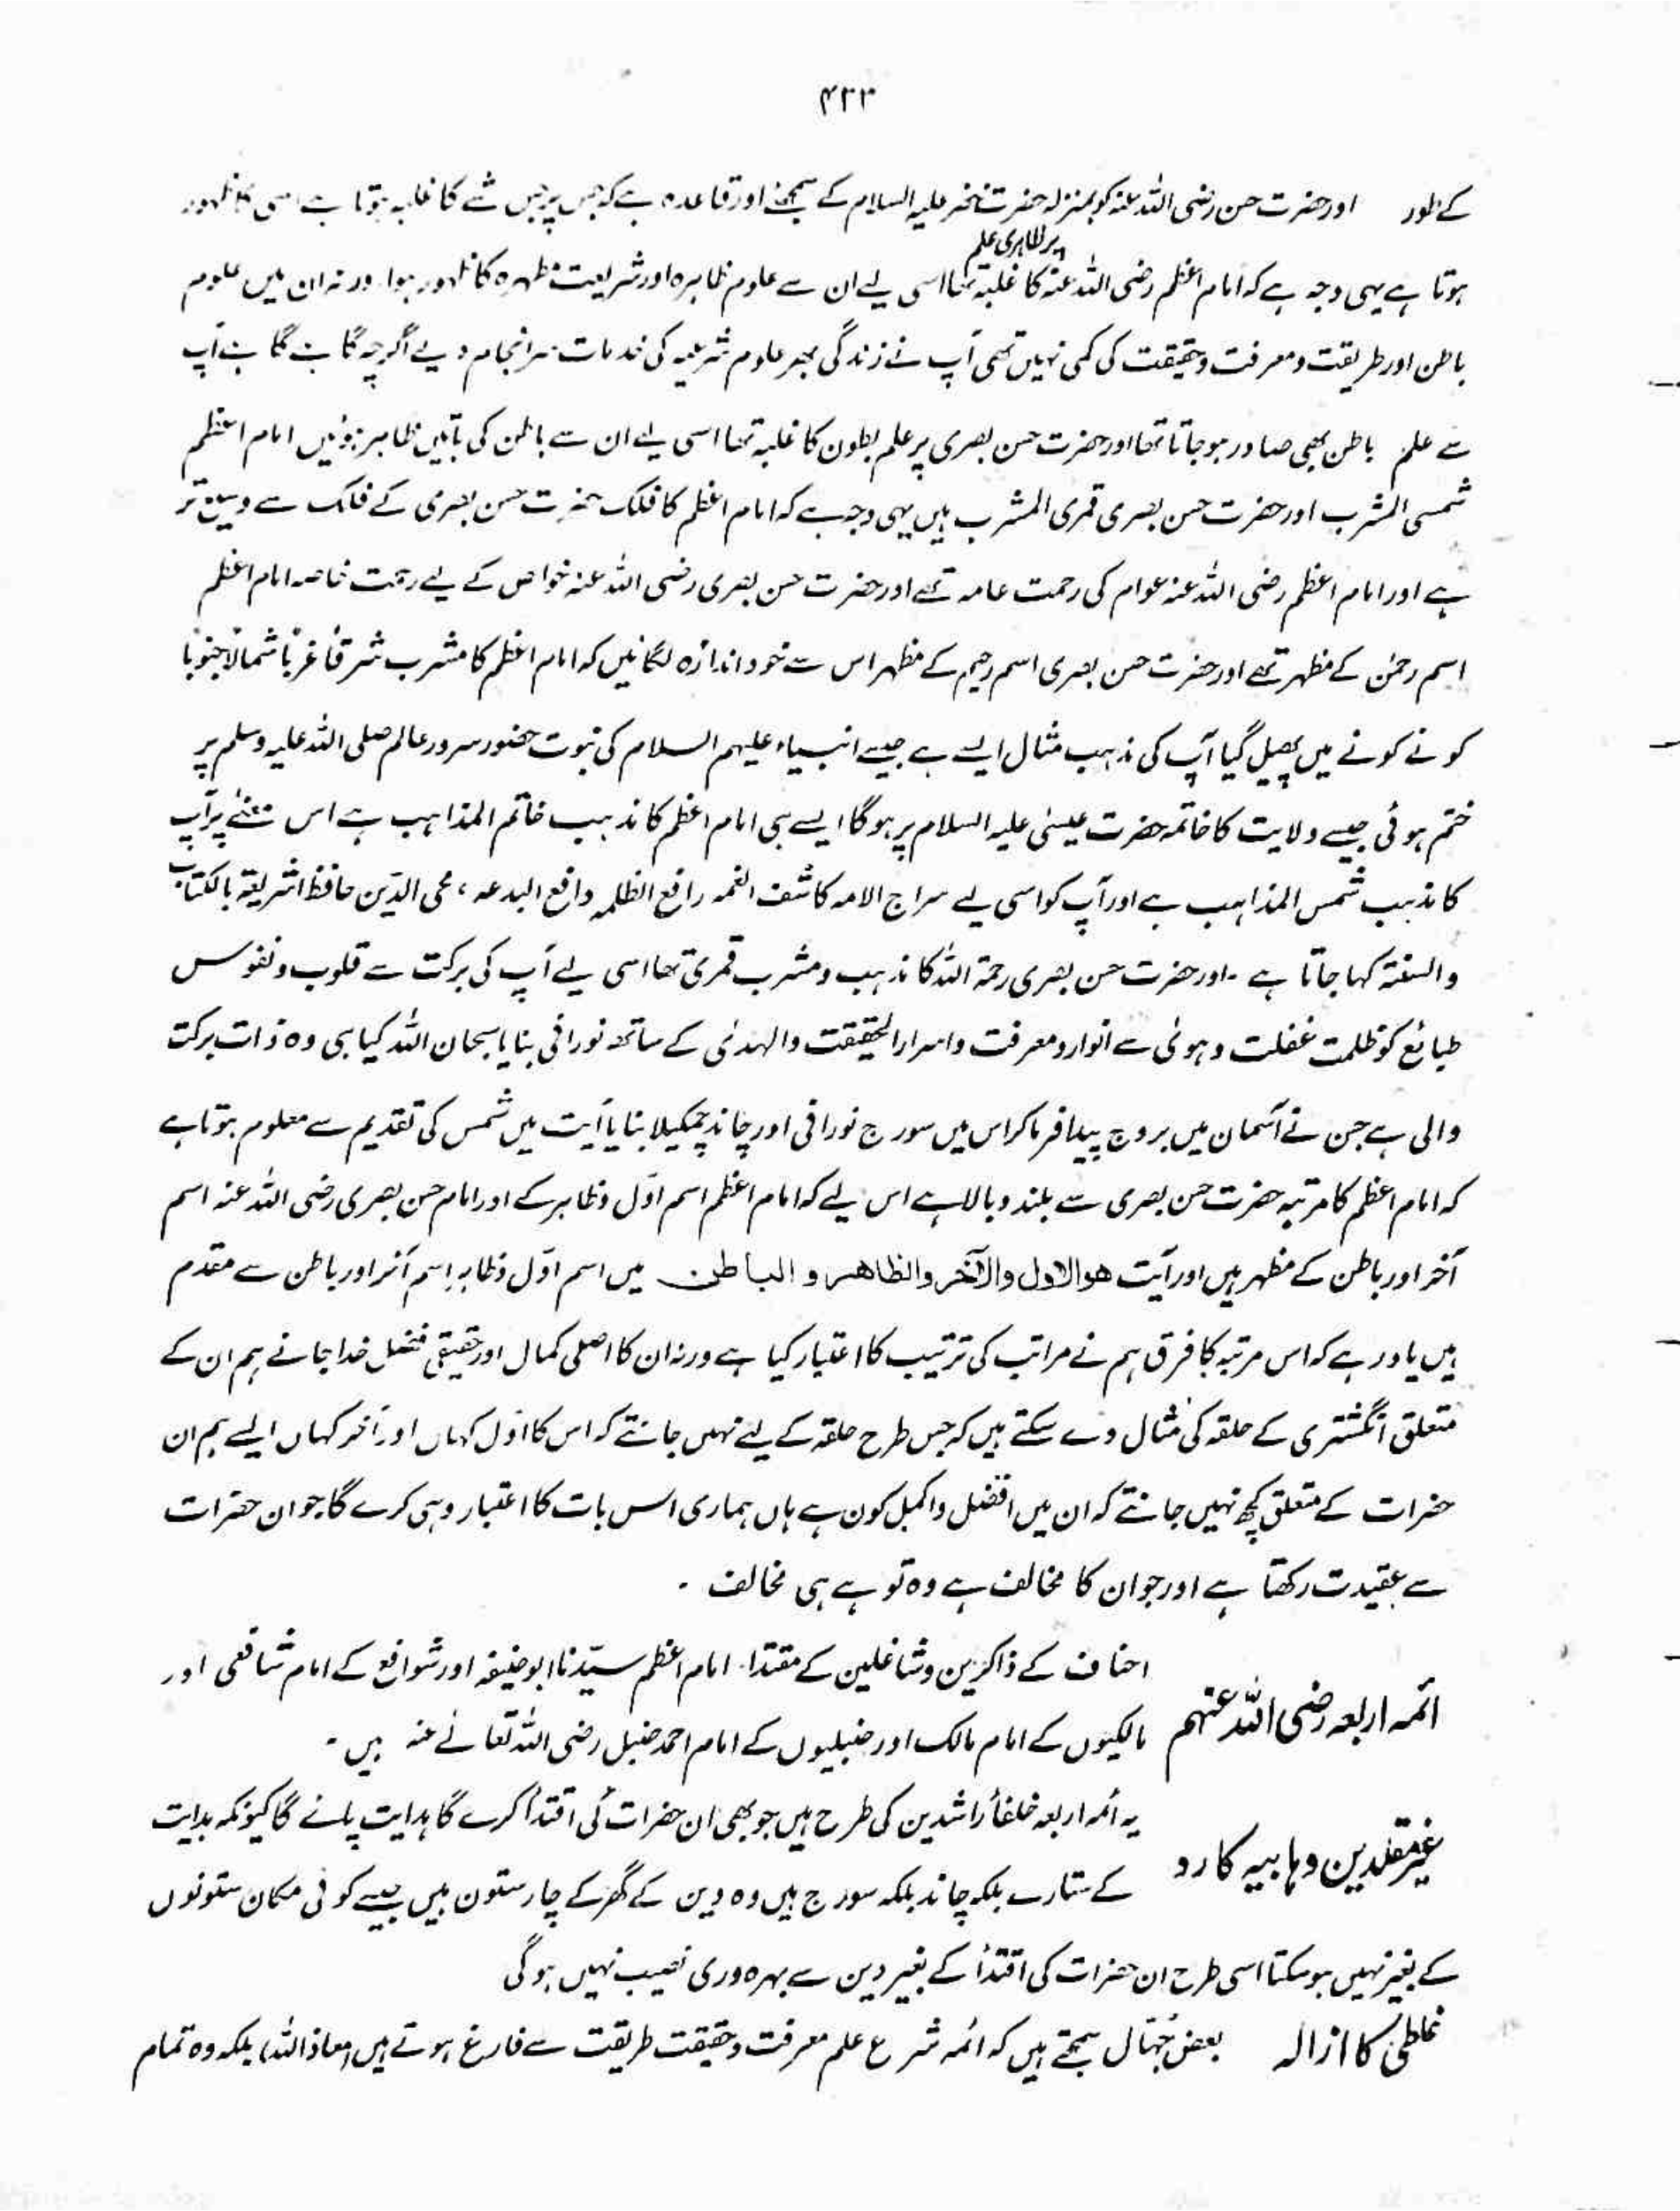 ۴۳۳
کے طور اور حضرت حسن رضی اللہ عنہ کو بمنزلہ حضرت خضر علیہ السلام کے سمجھئے اور قاعدہ ہے کہ جس پر جس شے کا غلبہ ہوتا ہے اسی کا ظہور
پر ظاہری علم
ہوتا ہے یہی وجہ ہے کہ امام اعظم رضی اللہ عنہ کا غلبہ تھا اسی لیے ان سے علوم ظاہرہ اور شریعت مطہرہ کا ظہور ہوا ورنہ ان میں علوم
باطن اور طریقت و معرفت و حقیقت کی کمی نہیں تھی آپ نے زندگی بھر علوم شرعیہ کی خدمات سرانجام دیے اگرچہ گاہے گاہے آپ
سے علم باطن بھی صادر ہو جاتا تھا اور حضرت حسن بصری پر علم بطون کا غلبہ تھا اسی لیے ان سے باطن کی باتیں ظاہر ہوئیں امام اعظم
شمسی المشرب اور حضرت حسن بصری قمری المشرب ہیں یہی وجہ ہے کہ امام اعظم کا فلک حضرت حسن بصری کے فلک سے وسیع تر
ہے اور امام اعظم رضی اللہ عنہ عوام کی رحمت عامہ تھے اور حضرت حسن بصری رضی اللہ عنہ خواص کے لیے رحمت خاصہ امام اعظم
اسم رحمٰن کے مظہر تھے اور حضرت حسن بصری اسم رحیم کے مظہر اس سے خود اندازہ لگائیں کہ امام اعظم کا مشرب شرقاً غرباً شمالاً جنوباً
کونے کونے میں پھیل گیا آپ کی مذہب مثال ایسے ہے جیسے انبیاء علیہم السلام کی نبوت حضور سرور عالم صلی اللہ علیہ وسلم پر
ختم ہوئی جیسے ولایت کا خاتمہ حضرت عیسیٰ علیہ السلام پر ہوگا ایسے ہی امام اعظم کا مذہب خاتم المذاہب ہے اس معنےٰ پر آپ
کا مذہب شمس المذاہب ہے اور آپ کو اسی لیے سراج الامہ کاشف الغمہ رافع الظلمہ دافع البدعہ ، محی الدین حافظ الشریعۃ بالکتاب
والسنۃ کہا جاتا ہے ۔ اور حضرت حسن بصری رحمۃ اللہ کا مذہب و مشرب قمری تھا اسی لیے آپ کی برکت سے قلوب و نفوس
طبائع کو ظلمت غفلت و ہوئی سے انوار و معرفت و اسرار الحقیقت والہدیٰ کے ساتھ نورانی بنایا سبحان اللہ کیا ہی وہ ذات برکت
والی ہے جن نے آسمان میں بروج پیدا فرما کر اس میں سورج نورانی اور چاند چمکیلا بنایا آیت میں شمس کی تقدیم سے معلوم ہوتا ہے
کہ امام اعظم کا مرتبہ حضرت حسن بصری سے بلند و بالا ہے اس لیے کہ امام اعظم اسم اوّل و ظاہر کے اور امام حسن بصری رضی اللہ عنہ اسم
آخر اور باطن کے مظہر ہیں اور آیت هو الاول والآخر والظاهر و الباطن میں اسم اوّل و ظاہر اسم آخر اور باطن سے مقدم
ہیں یاد رہے کہ اس مرتبہ کا فرق ہم نے مراتب کی ترتیب کا اعتبار کیا ہے ورنہ ان کا اصلی کمال اور حقیقی فضل خدا جانے ہم ان کے
متعلق انگشتری کے حلقہ کی مثال دے سکتے ہیں کہ جس طرح حلقہ کے لیے نہیں جانتے کہ اس کا اوّل کہاں اور آخر کہاں ایسے ہم ان
حضرات کے متعلق کچھ نہیں جانتے کہ ان میں افضل و اکمل کون ہے ہاں ہماری اس بات کا اعتبار وہی کرے گا جو ان حضرات
سے عقیدت رکھتا ہے اور جو ان کا مخالف ہے وہ تو ہے ہی مخالف ۔
ائمہ اربعہ رضی اللہ عنہم
احناف کے ذاکرین و شاغلین کے مقتدا امام اعظم سیّدنا ابو حنیفہ اور شوافع کے امام شافعی اور
مالکیوں کے امام مالک اور حنبلیوں کے امام احمد حنبل رضی اللہ تعالےٰ عنہ ہیں ۔
غیر مقلدین وہابیہ کا رد
یہ ائمہ اربعہ خلفأ راشدین کی طرح ہیں جو بھی ان حضرات کی اقتدأ کرے گا ہدایت پائے گا کیونکہ ہدایت
کے ستارے بلکہ چاند بلکہ سورج ہیں وہ دین کے گھر کے چار ستون ہیں جیسے کوئی مکان ستونوں
کے بغیر نہیں ہو سکتا اسی طرح ان حضرات کی اقتدأ کے بغیر دین سے بہرہ وری نصیب نہیں ہوگی
غلطی کا ازالہ بعض جُہّال سمجھتے ہیں کہ ائمہ شرع علم معرفت و حقیقت طریقت سے فارغ ہوتے ہیں (معاذ اللہ) بلکہ وہ تمام